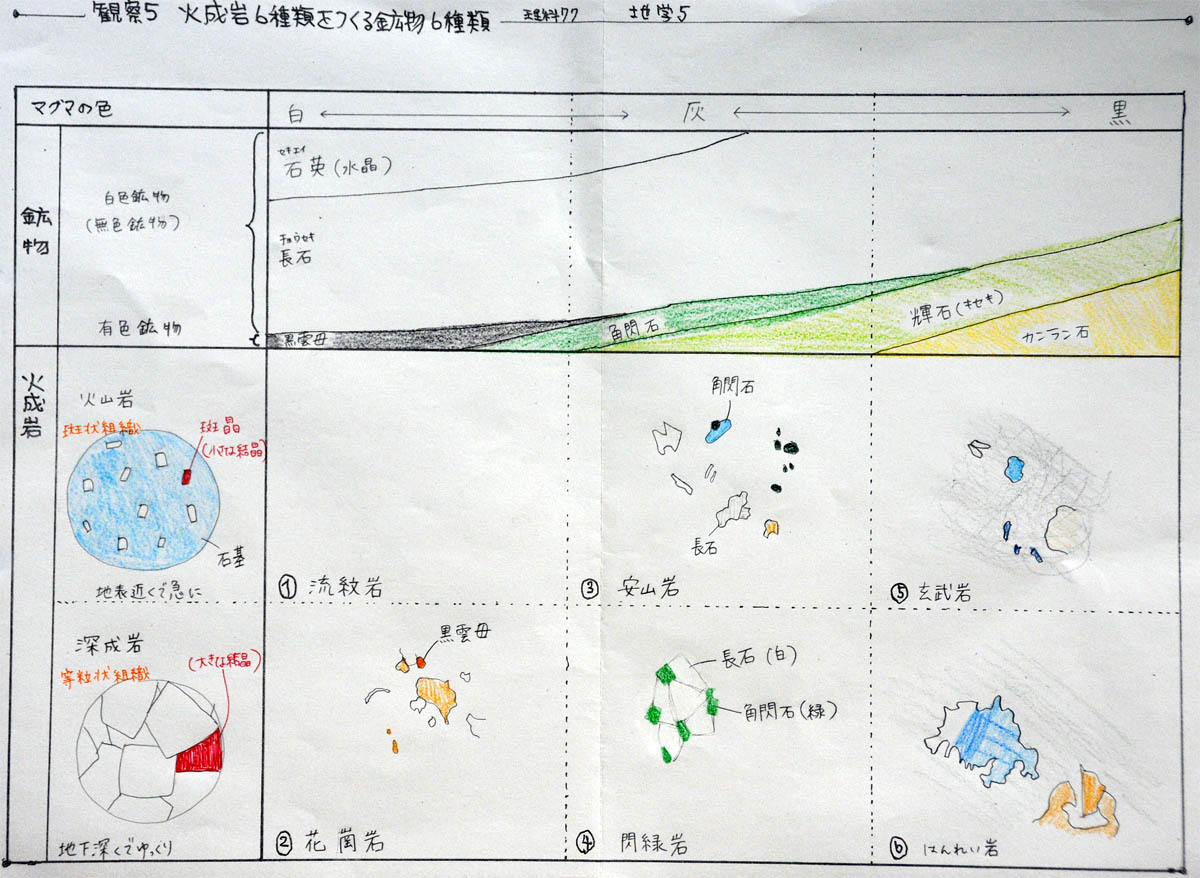 観察5 火成岩6種類をつくる鉱物6種類 理科77 地学5
マグマの色
白 灰 黒
鉱物
白色鉱物
(無色鉱物)
有色鉱物
セキエイ
石英(水晶)
チョウセキ
長石
黒雲母
角閃石
輝石(キセキ)
カンラン石
火成岩
火山岩
斑状組織
斑晶
(小さな結晶)
石基
地表近くで急に
① 流紋岩
角閃石
長石
③ 安山岩
⑤ 玄武岩
深成岩
等粒状組織
(大きな結晶)
地下深くでゆっくり
黒雲母
② 花崗岩
長石(白)
角閃石(緑)
④ 閃緑岩
⑥ はんれい岩